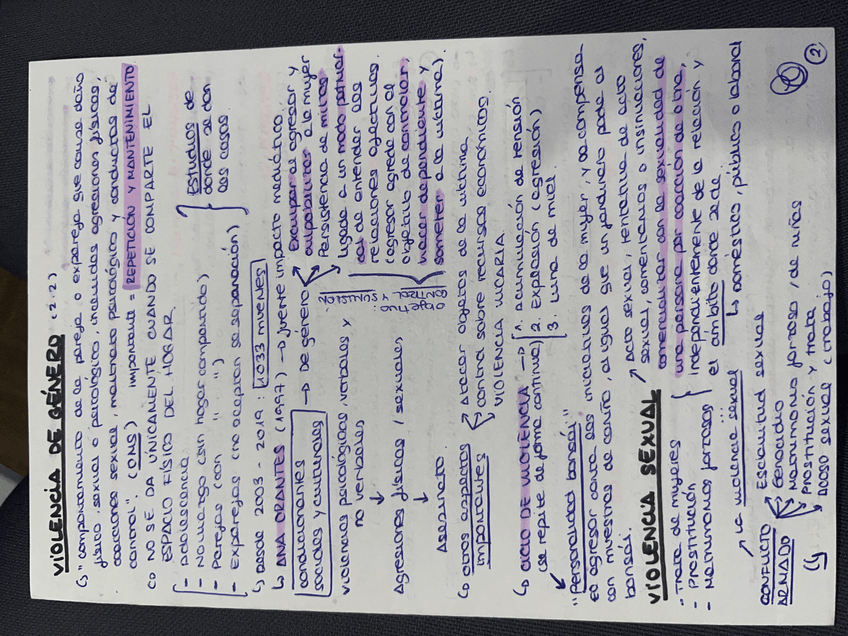 VIOLENCIA DE GÉNERO (2.2)
↳ "comportamiento de la pareja o expareja que cause daño
físico, sexual o psicológico, incluidas agresiones físicas,
coacciones sexual, maltrato psicológico y conductas de
control" (OMS) importante = REPETICIÓN Y MANTENIMIENTO
NO SE DA ÚNICAMENTE CUANDO SE COMPARTE EL
ESPACIO FÍSICO DEL HOGAR
- Adolescencia
- Noviazgo (sin hogar compartido)
- Parejas (con " " ")
- Exparejas (no aceptan la separación)
Estudios de
donde se dan
los casos
↳ Desde 2003 - 2019: 1033 mueres
↳ ANA ORANTES (1997) → fuerte impacto mediático
condicionantes
sociales y culturales
→ De género
Exculpar al agresor y
culpabilizar a la mujer
Persistencia de mitos
ligada a un modo patriar-
cal de entender las
relaciones afectivas.
(agresor agrede con el
objetivo de controlar,
hacer dependiente y
someter a la víctima).
objetivo:
CONTROL
Y SUMISIÓN
violencias psicológicas verbales y
no verbales
↓
Agresiones físicas / sexuales
↓
Asesinato
↳ otros aspectos
importantes
→ Atacar objetos de la víctima
→ control sobre recursos económicos.
→ VIOLENCIA VICARIA
↳ CICLO DE VIOLENCIA →
(se repite de forma continua)
1. Acumulación de tensión
2. Explosión (agresión)
3. Luna de miel
"Personalidad bonsái"
El agresor corta las iniciativas de la mujer, y se compensa
con muestras de cariño, al igual que un jardinero poda al
bonsái.
VIOLENCIA SEXUAL
→ Acto sexual, tentativa de acto
sexual, comentarios o insinuaciones,
comercializar con la sexualidad de
una persona por coacción de otra,
independientemente de la relación y
el ámbito donde se de
↳ doméstico, público o laboral
- Trata de mujeres
- Prostitución
- Matrimonios forzosos
→ la violencia sexual
CONFLICTO
ARMADO
Esclavitud sexual
Genocidio
Matrimonio forzoso, de niñas
Prostitución y trata
Acoso sexual (trabajo)
2